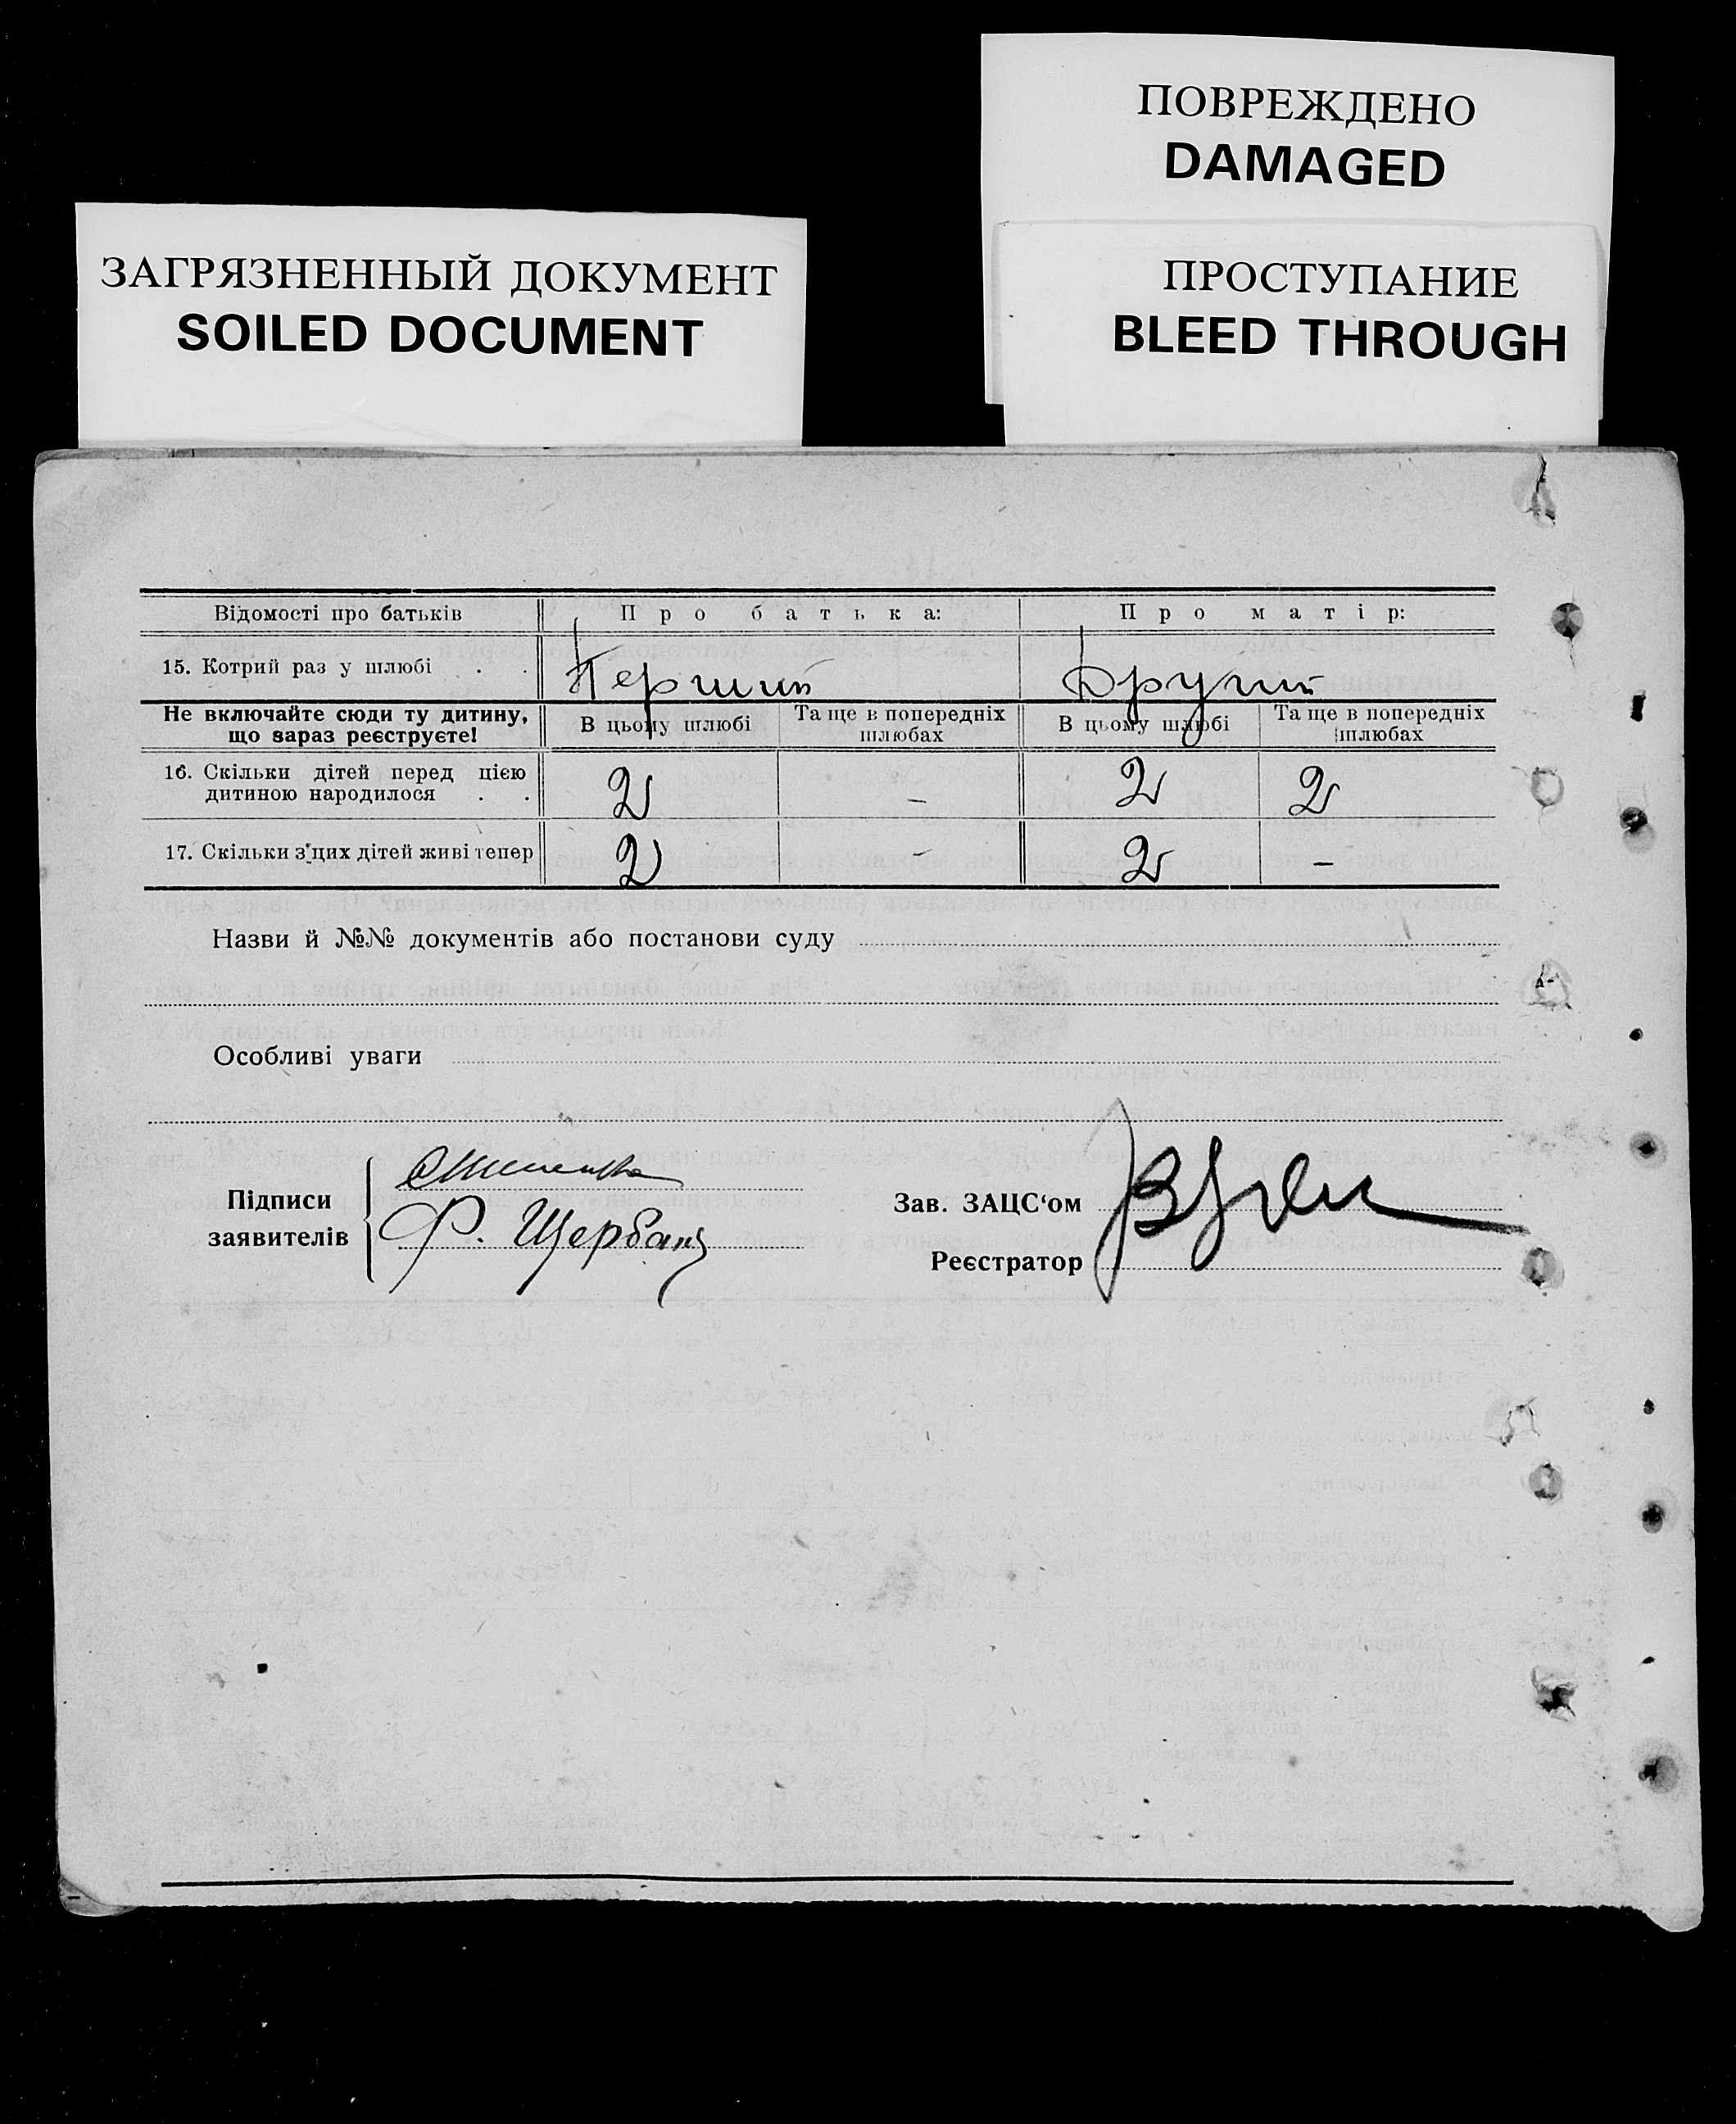 ПОВРЕЖДЕНО
DAMAGED
ЗАГРЯЗНЕННЫЙ ДОКУМЕНТ
SOILED DOCUMENT
ПРОСТУПАНИЕ
BLEED THROUGH
Відомості про батьків Про батька: Про матір:
15. Котрий раз у шлюбі . . Перший Другий
Не включайте сюди ту дитину, що зараз реєструєте! В цьому шлюбі Та ще в попередніх шлюбах В цьому шлюбі Та ще в попередніх шлюбах
16. Скільки дітей перед цією дитиною народилося . . 2 – 2 2
17. Скільки з цих дітей живі тепер 2 – 2 –
Назви й №№ документів або постанови суду
Особливі уваги
Підписи заявителів
Ф. Щербань
Зав. ЗАЦС‘ом
Реєстратор